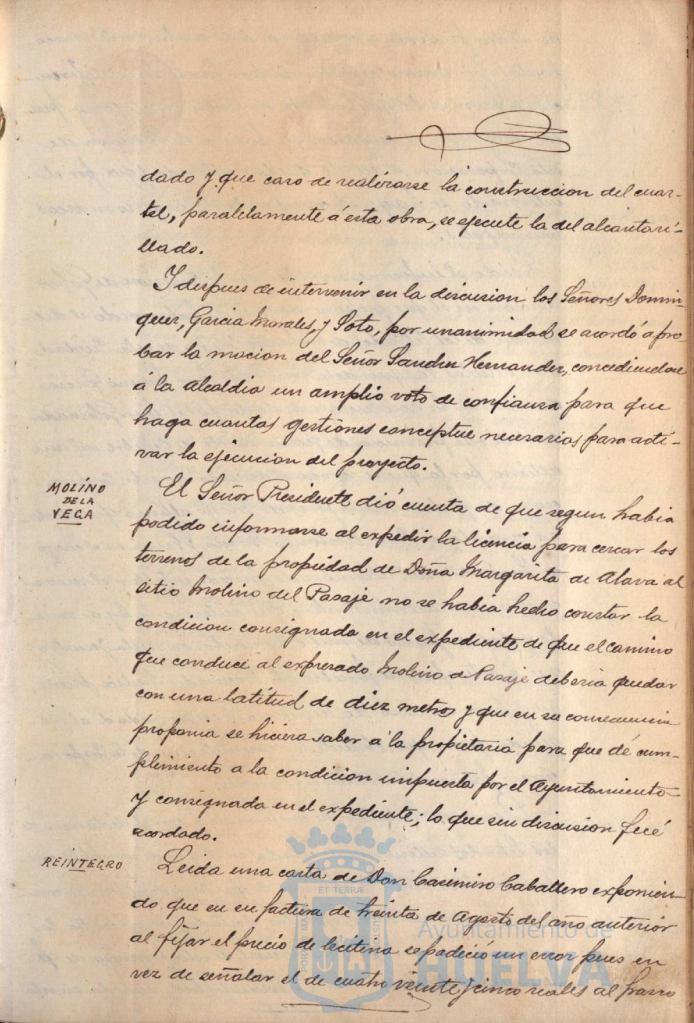 dado y que caso de realizarse la construccion del cuar-
tel, paralelamente á esta obra, se ejecute la del alcantari-
llado.
Y despues de intervenir en la discusion los Señores Domin-
guez, Garcia Morales, y Soto, por unanimidad se acordó apro
bar la mocion del Señor Sanchez Hernandez, concediendose
á la alcaldia un amplio voto de confianza para que
haga cuantas gestiones conceptue necesarias para acti-
var la ejecucion del proyecto.
MOLINO
DE LA
VEGA
El Señor Presidente dió cuenta de que segun habia
podido informarse al expedir la licencia para cercar los
terrenos de la propiedad de Doña Margarita de Alava al
sitio Molino del Pasaje no se habia hecho constar la
condicion consignada en el expediente de que el camino
que conduce al expresado Molino de Pasaje deberia quedar
con una latitud de diez metros y que en su consecuencia
proponia se hiciera saber á la propietaria para que dé cum-
plimiento a la condicion impuesta por el Ayuntamiento
y consignada en el expediente; lo que sin discusion fué
acordado.
REINTEGRO
Leida una carta de Don Casimiro Caballero exponien-
do que en su factura de treinta de Agosto del año anterior
al fijar el precio de lecitina se padeció un error pues en
vez de señalar el de cuatro veinte y cinco reales al frasco
Ayuntamiento de
HUELVA